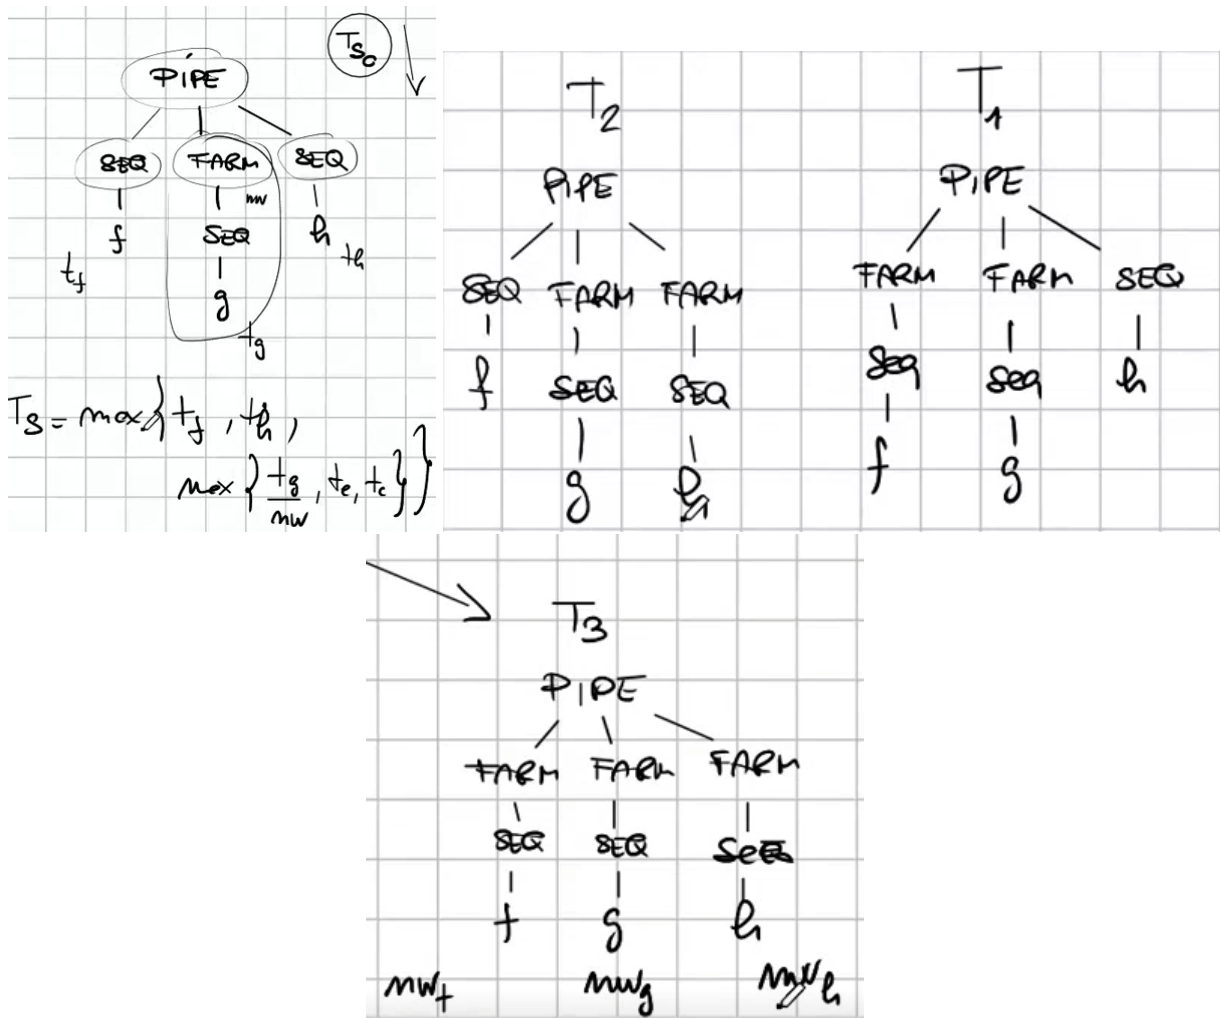 T_S0
PIPE
SEQ FARM SEQ
nw
f SEQ h
t_f g t_h
t_g
T_S = max { t_f , t_h ,
max { t_g / nw , t_e , t_c } }
T_2
PIPE
SEQ FARM FARM
f SEQ SEQ
g h
T_1
PIPE
FARM FARM SEQ
Seq Seq h
f g
T_3
PIPE
FARM FARM FARM
SEQ SEQ SEQ
f g h
nw_f nw_g nw_h